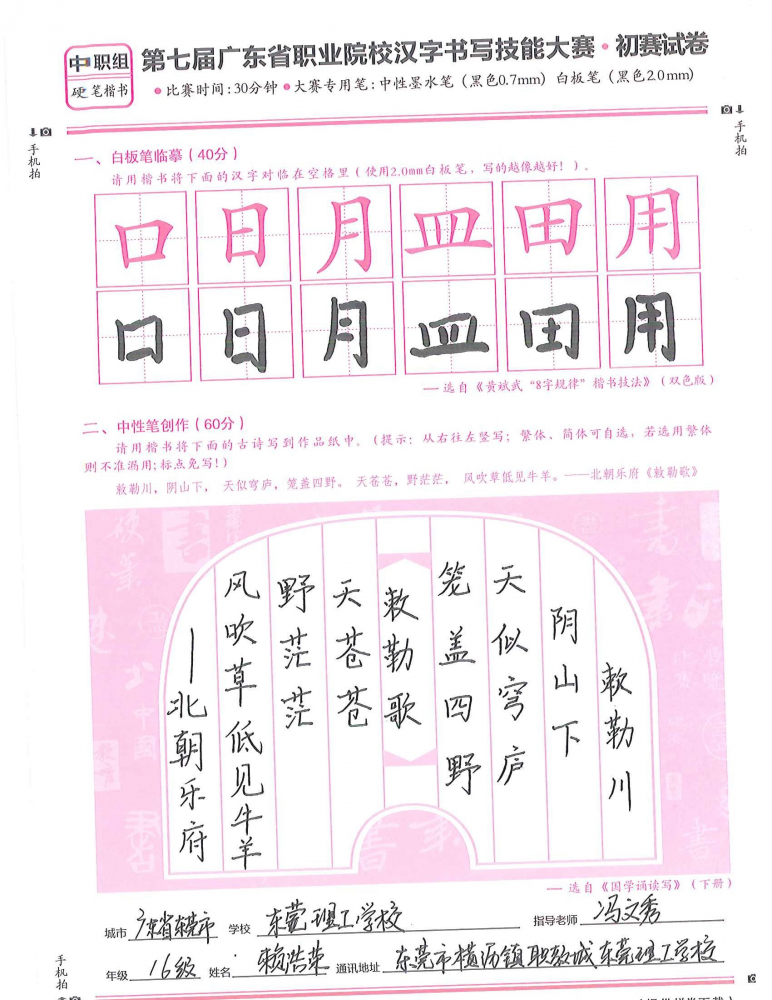 中职组
硬笔楷书
第七届广东省职业院校汉字书写技能大赛·初赛试卷
•比赛时间:30分钟 •大赛专用笔:中性墨水笔(黑色0.7mm) 白板笔(黑色2.0mm)
手机拍
手机拍
一、白板笔临摹(40分)
请用楷书将下面的汉字对临在空格里(使用2.0mm白板笔,写的越像越好!)。
口日月皿田用
口日月皿田用
—选自《黄斌武“8字规律”楷书技法》(双色版)
二、中性笔创作(60分)
请用楷书将下面的古诗写到作品纸中。(提示:从右往左竖写;繁体、简体可自选,若选用繁体
则不准漏用;标点免写!)
敕勒川,阴山下, 天似穹庐,笼盖四野。 天苍苍,野茫茫, 风吹草低见牛羊。——北朝乐府《敕勒歌》
敕勒川
阴山下
天似穹庐
笼盖四野
敕勒歌
天苍苍
野茫茫
风吹草低见牛羊
—北朝乐府
—选自《国学诵读写》(下册)
城市 广东省东莞市 学校 东莞理工学校 指导老师 冯文秀
年级 16级 姓名 赖浩荣 通讯地址 东莞市横沥镇职教城东莞理工学校
手机拍